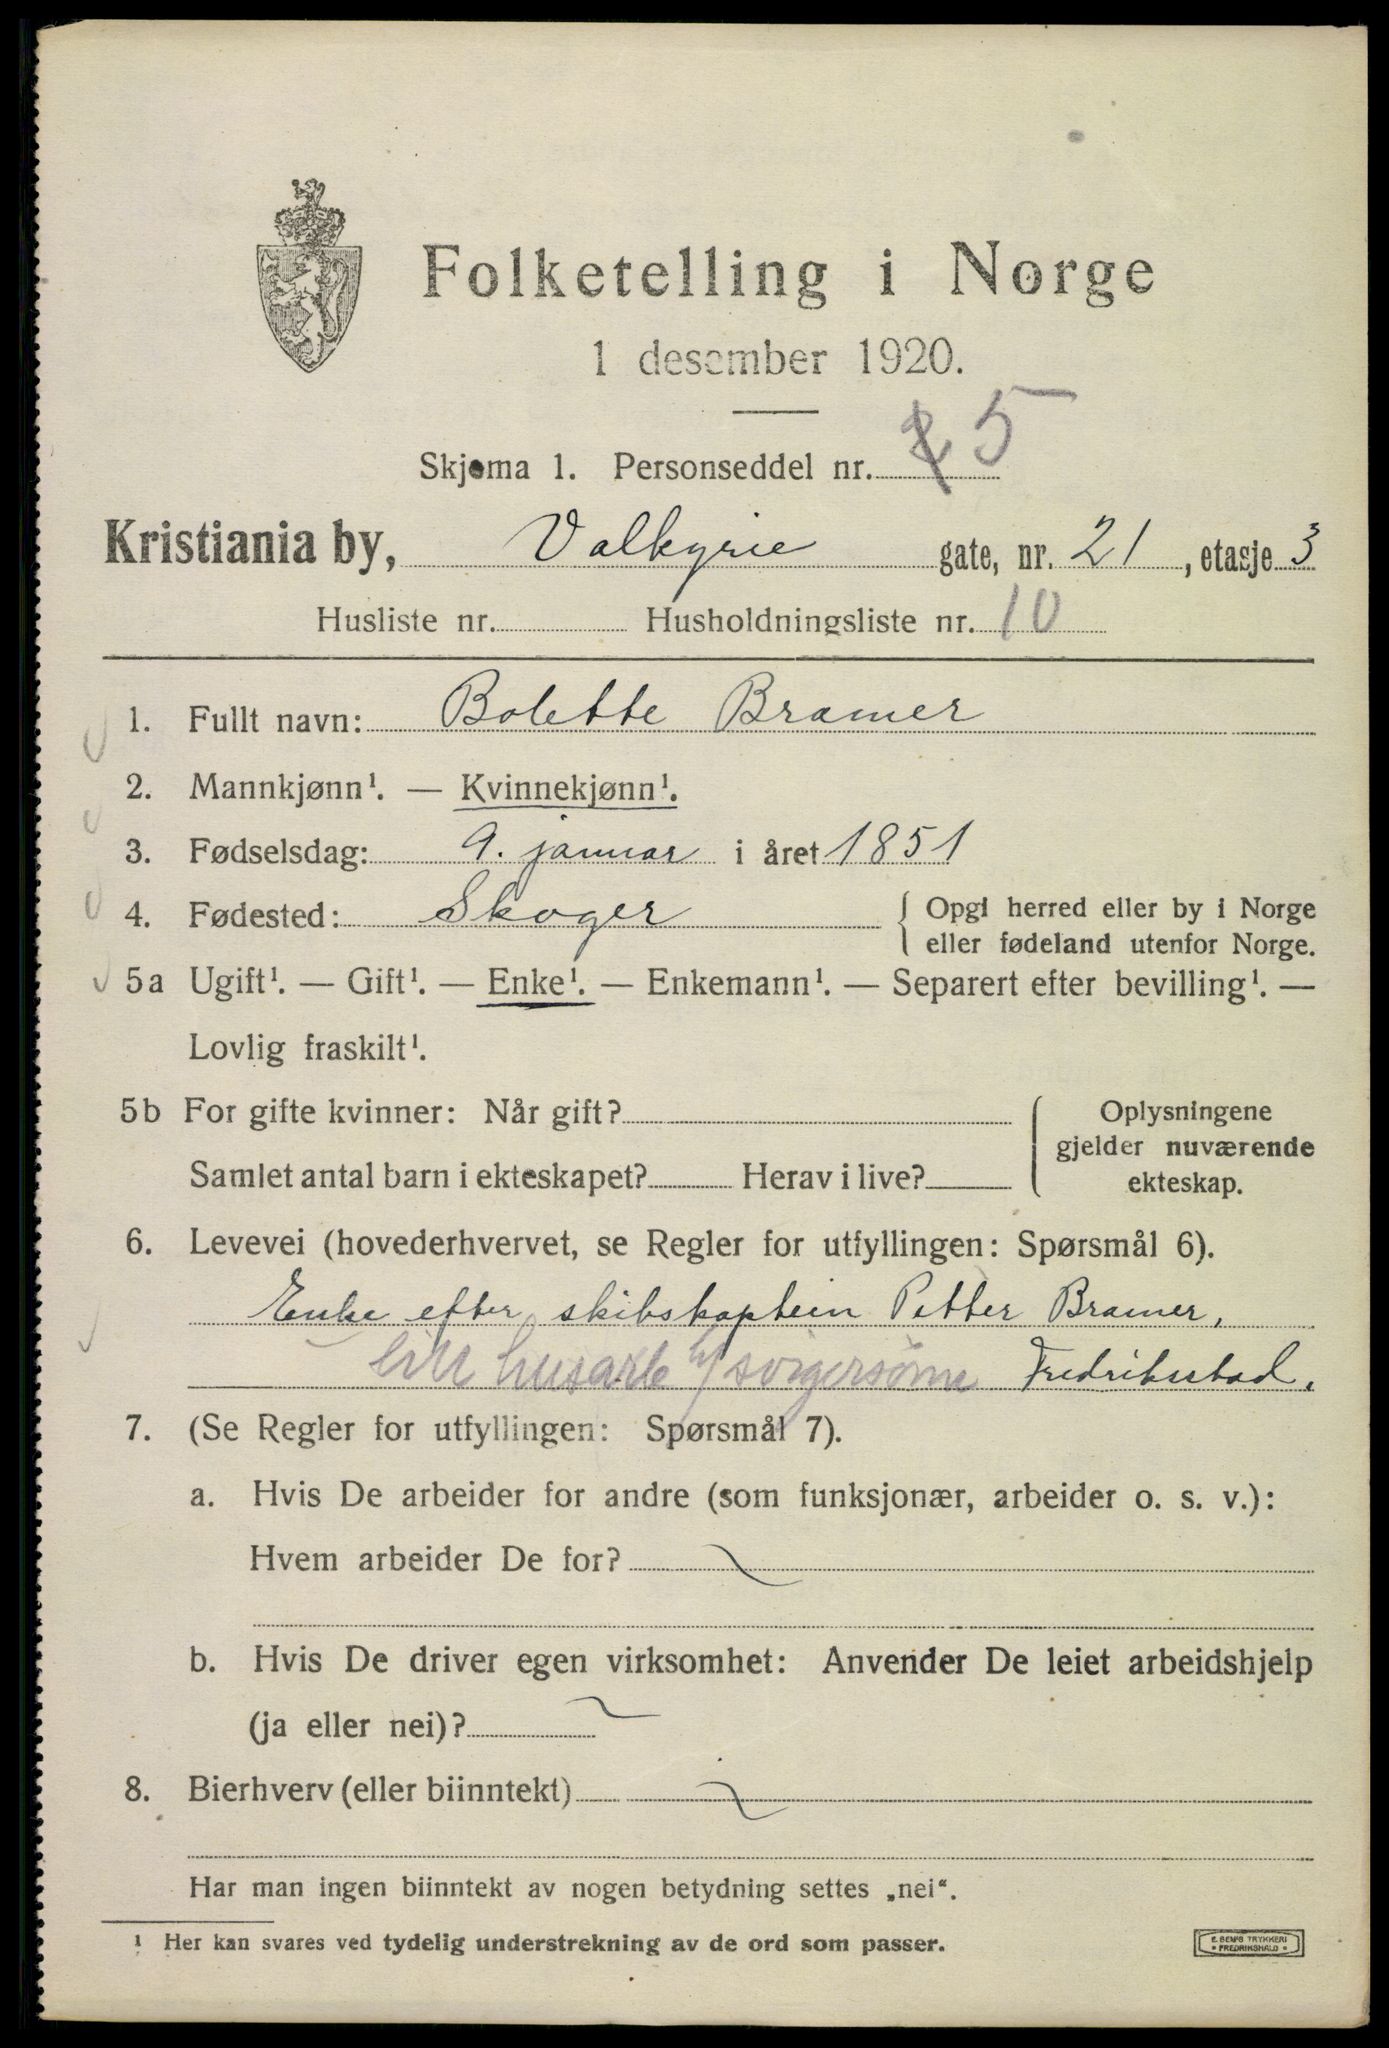 Folketelling i Norge
1 desember 1920.
Skjema 1. Personseddel nr. 5
Kristiania by, Valkyrie gate, nr. 21, etasje 3
Husliste nr. Husholdningsliste nr. 10
1. Fullt navn: Bolette Bramer
2. Mannkjønn¹. — Kvinnekjønn¹.
3. Fødselsdag: 9. januar i året 1851
4. Fødested: Skoger { Opgi herred eller by i Norge
eller fødeland utenfor Norge.
5a Ugift¹. — Gift¹. — Enke¹. — Enkemann¹. — Separert efter bevilling¹. —
Lovlig fraskilt¹.
5b For gifte kvinner: Når gift? { Oplysningene
gjelder nuværende
Samlet antal barn i ekteskapet? Herav i live? ekteskap.
6. Levevei (hovederhvervet, se Regler for utfyllingen: Spørsmål 6).
Enke efter skibskaptein Petter Bramer,
litt husarb h/ svigersønn Fredriksstad.
7. (Se Regler for utfyllingen: Spørsmål 7).
a. Hvis De arbeider for andre (som funksjonær, arbeider o. s. v.):
Hvem arbeider De for? ~
b. Hvis De driver egen virksomhet: Anvender De leiet arbeidshjelp
(ja eller nei)? ~
8. Bierhverv (eller biinntekt) ~
Har man ingen biinntekt av nogen betydning settes „nei“.
¹ Her kan svares ved tydelig understrekning av de ord som passer.
E. SEMS TRYKKERI
• FREDRIKSHALD •